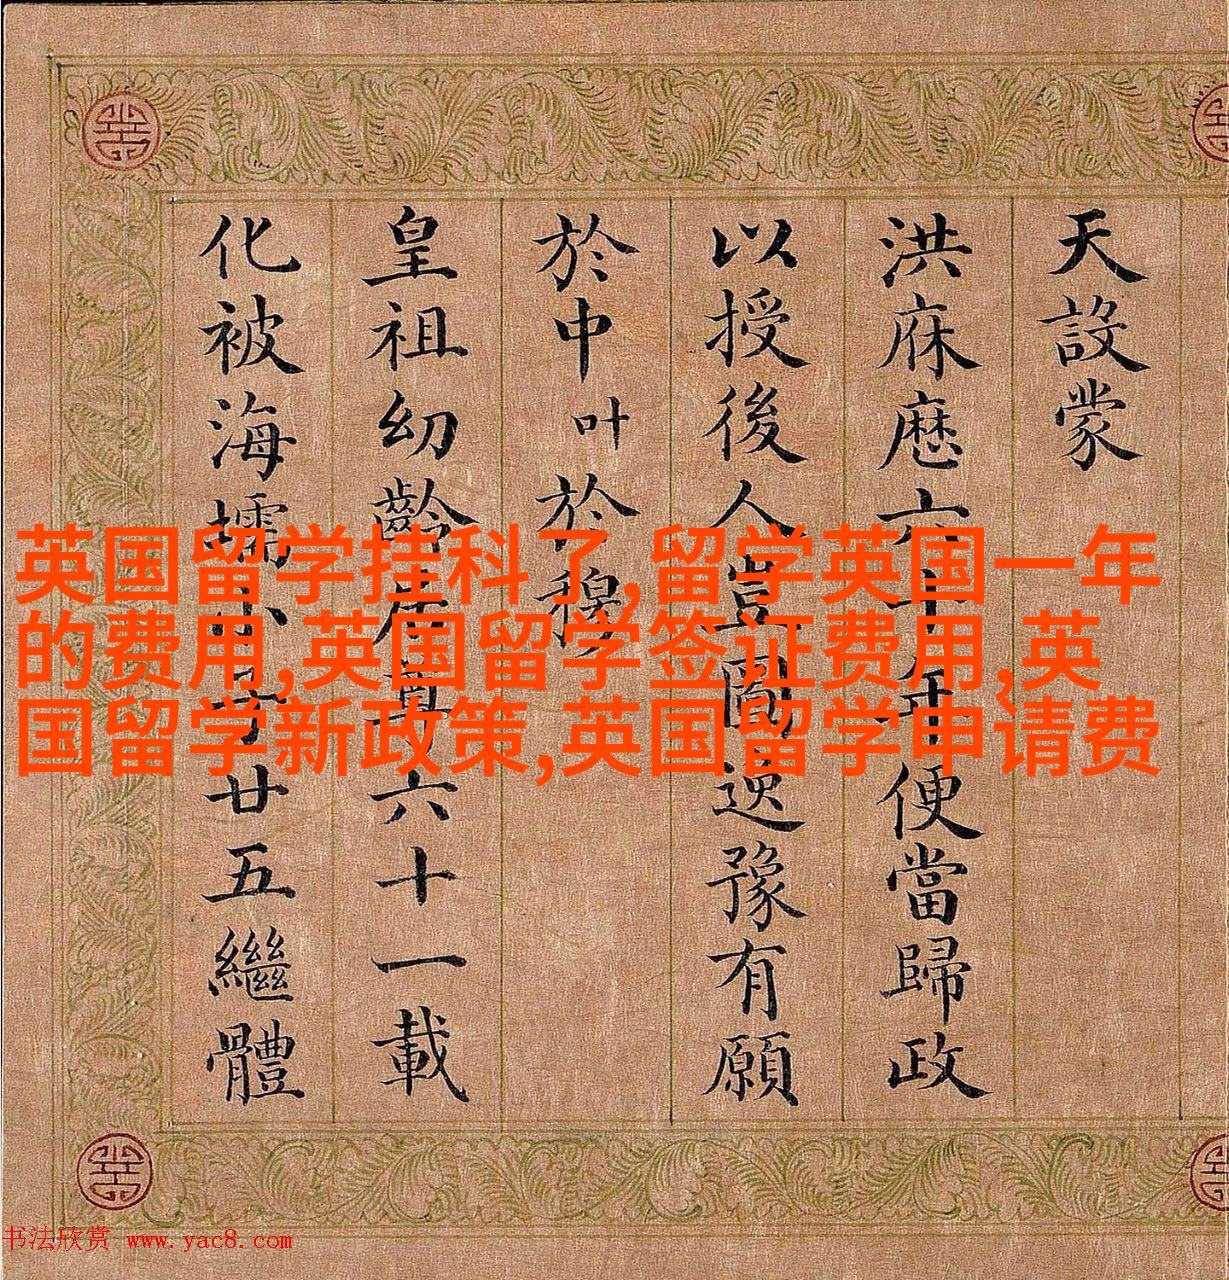 天設蒙
洪庥歷六十年便當歸政
以授後人豈圖逸豫有願
於中叶於穆
皇祖幼齡居尊六十一載
化被海壖小子廿五繼體
英国留学挂科了,留学英国一年
的费用,英国留学签证费用,英
国留学新政策,英国留学申请费
书法欣赏 www.yac8.com